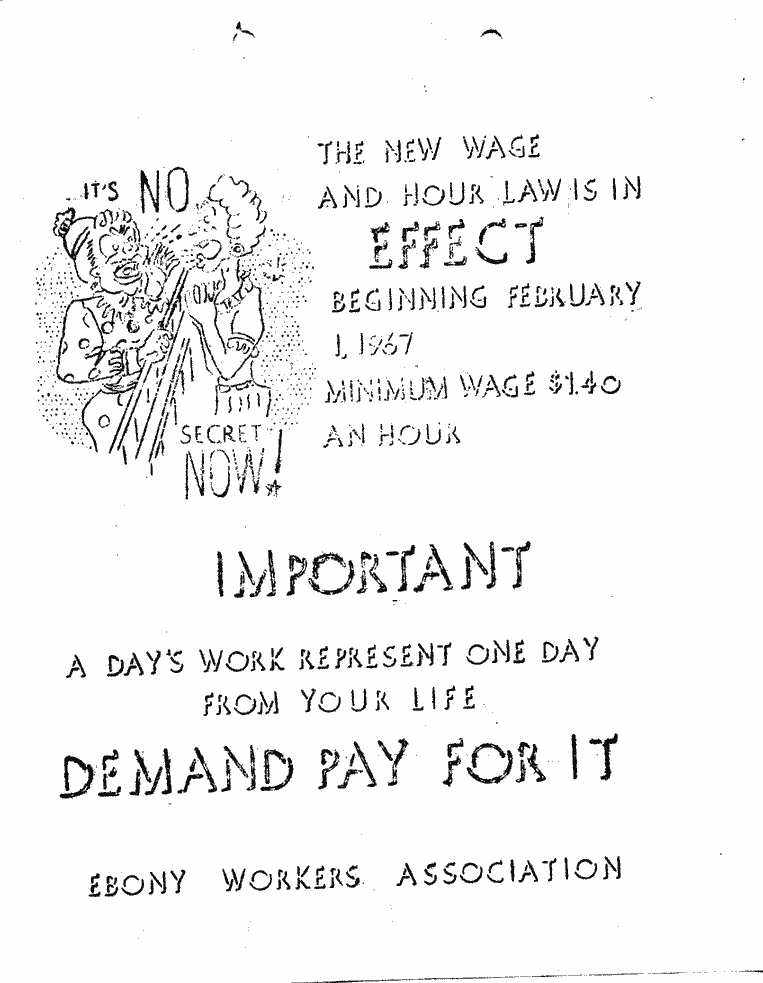 IT'S NO
SECRET
NOW!
THE NEW WAGE
AND HOUR LAW IS IN
EFFECT
BEGINNING FEBRUARY
1, 1967
MINIMUM WAGE $1.40
AN HOUR
IMPORTANT
A DAY'S WORK REPRESENT ONE DAY
FROM YOUR LIFE
DEMAND PAY FOR IT
EBONY WORKERS ASSOCIATION